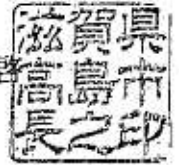 滋賀県
高島市
長之印